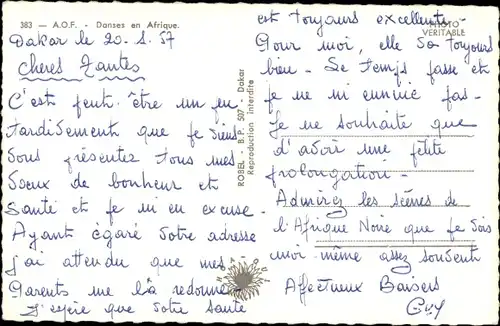 383 — A.O.F. - Danses en Afrique.
Dakar le 20.1.57
Chères Tantes
C'est peut-être un peu
tardivement que je viens
vous présenter tous mes
voeux de bonheur et
santé et je m'en excuse.
Ayant égaré votre adresse
j'ai attendu que mes
Parents me la redonne.
J'espère que votre santé
ROBEL - B.P. 507 - Dakar
Reproduction interdite
PHOTO
VERITABLE
est toujours excellente
Pour moi, elle va toujours
bien. Le temps passe et
je ne m'ennuie pas.
Je ne souhaite que
d'avoir une petite
prolongation.
Admirez les scènes de
l'Afrique Noire que je vois
moi-même assez souvent
Affectueux Baisers
Guy